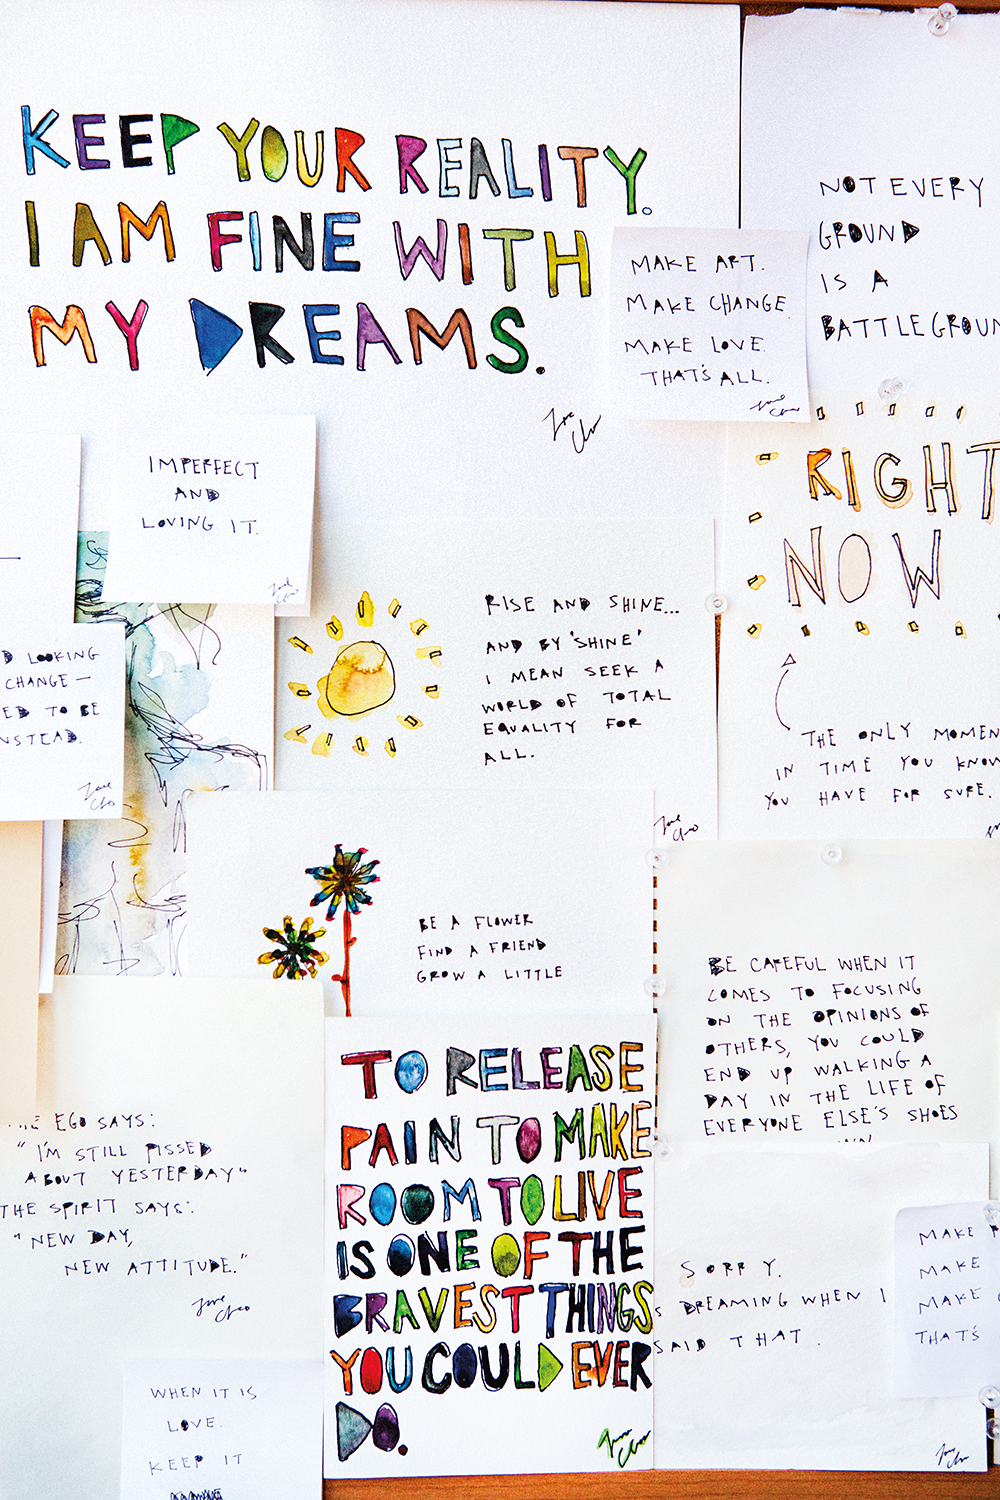 KEEP YOUR REALITY.
I AM FINE WITH
MY DREAMS.
Love Cleo
NOT EVERY
GROUND
IS A
BATTLEGROUN
MAKE ART.
MAKE CHANGE.
MAKE LOVE.
THAT'S ALL.
Love Cleo
IMPERFECT
AND
LOVING IT.
Love Cleo
RIGHT
NOW
THE ONLY MOMEN
IN TIME YOU KNOW
YOU HAVE FOR SURE.
D LOOKING
CHANGE —
ED TO BE
NSTEAD.
Love Cleo
RISE AND SHINE...
AND BY 'SHINE'
I MEAN SEEK A
WORLD OF TOTAL
EQUALITY FOR
ALL.
Love Cleo
BE A FLOWER
FIND A FRIEND
GROW A LITTLE
BE CAREFUL WHEN IT
COMES TO FOCUSING
ON THE OPINIONS OF
OTHERS, YOU COULD
END UP WALKING A
DAY IN THE LIFE OF
EVERYONE ELSE'S SHOES
EGO SAYS:
"I'M STILL PISSED
ABOUT YESTERDAY"
THE SPIRIT SAYS:
"NEW DAY,
NEW ATTITUDE."
Love Cleo
TO RELEASE
PAIN TO MAKE
ROOM TO LIVE
IS ONE OF THE
BRAVEST THINGS
YOU COULD EVER
DO.
Love Cleo
SORRY.
S DREAMING WHEN I
SAID THAT.
Love Cleo
MAKE
MAKE
MAKE
THAT'S
WHEN IT IS
LOVE.
KEEP IT